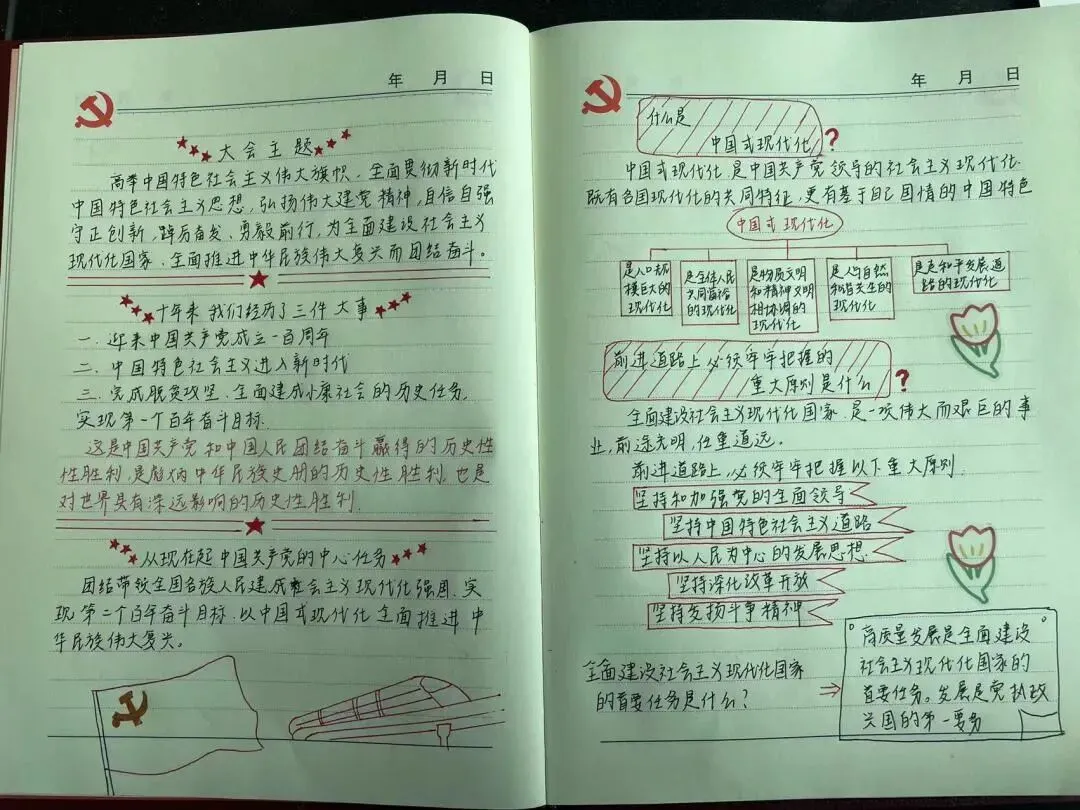 年 月 日
大会主题
高举中国特色社会主义伟大旗帜，全面贯彻新时代
中国特色社会主义思想，弘扬伟大建党精神，自信自强
守正创新，踔厉奋发、勇毅前行，为全面建设社会主义
现代化国家、全面推进中华民族伟大复兴而团结奋斗。
十年来 我们经历了三件大事
一. 迎来中国共产党成立一百周年
二. 中国特色社会主义进入新时代
三. 完成脱贫攻坚、全面建成小康社会的历史任务,
实现第一个百年奋斗目标.
这是中国共产党和中国人民团结奋斗赢得的历史性
性胜利,是彪炳中华民族史册的历史性胜利,也是
对世界具有深远影响的历史性胜利.
从现在起中国共产党的中心任务
团结带领全国各族人民建成社会主义现代化强国、实
现第二个百年奋斗目标,以中国式现代化全面推进中
华民族伟大复兴。
年 月 日
什么是
中国式现代化?
中国式现代化,是中国共产党领导的社会主义现代化.
既有各国现代化的共同特征,更有基于自己国情的中国特色
中国式现代化
是人口规
模巨大的
现代化
是全体人民
共同富裕
的现代化
是物质文明
和精神文明
相协调的
现代化
是人与自然
和谐共生的
现代化
是走和平发展道
路的现代化
前进道路上必须牢牢把握的
重大原则是什么?
全面建设社会主义现代化国家,是一项伟大而艰巨的事
业,前途光明,任重道远。
前进道路上,必须牢牢把握以下重大原则.
坚持和加强党的全面领导
坚持中国特色社会主义道路
坚持以人民为中心的发展思想
坚持深化改革开放
坚持发扬斗争精神
全面建设社会主义现代化国家
的首要任务是什么?
高质量发展是全面建设
社会主义现代化国家的
首要任务。发展是党执政
兴国的第一要务